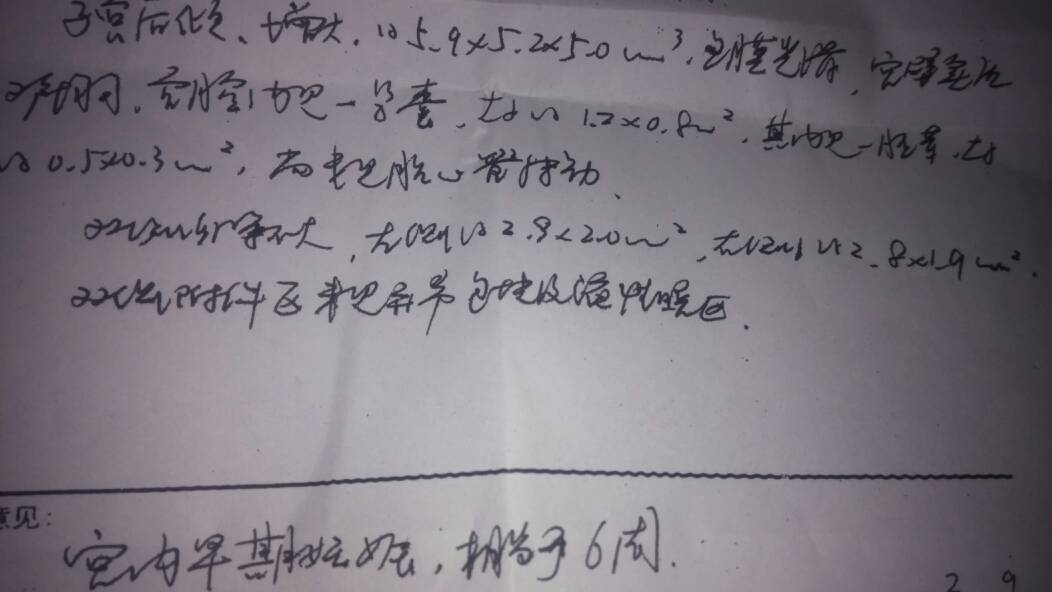 子宫后位、增大、约5.9×5.2×5.0cm³,包膜光滑,宫壁回声
均匀,宫腔内见一孕囊,大小约1.2×0.8cm²,其内见一胚芽,大小
约0.5×0.3cm²,尚未见胎心管搏动、
双侧卵巢不大,左侧约2.9×2.0cm²,右侧约2.8×1.9cm²。
双侧附件区未见异常包块及液性暗区。
意见:
宫内早期妊娠,相当于6周.
2 9